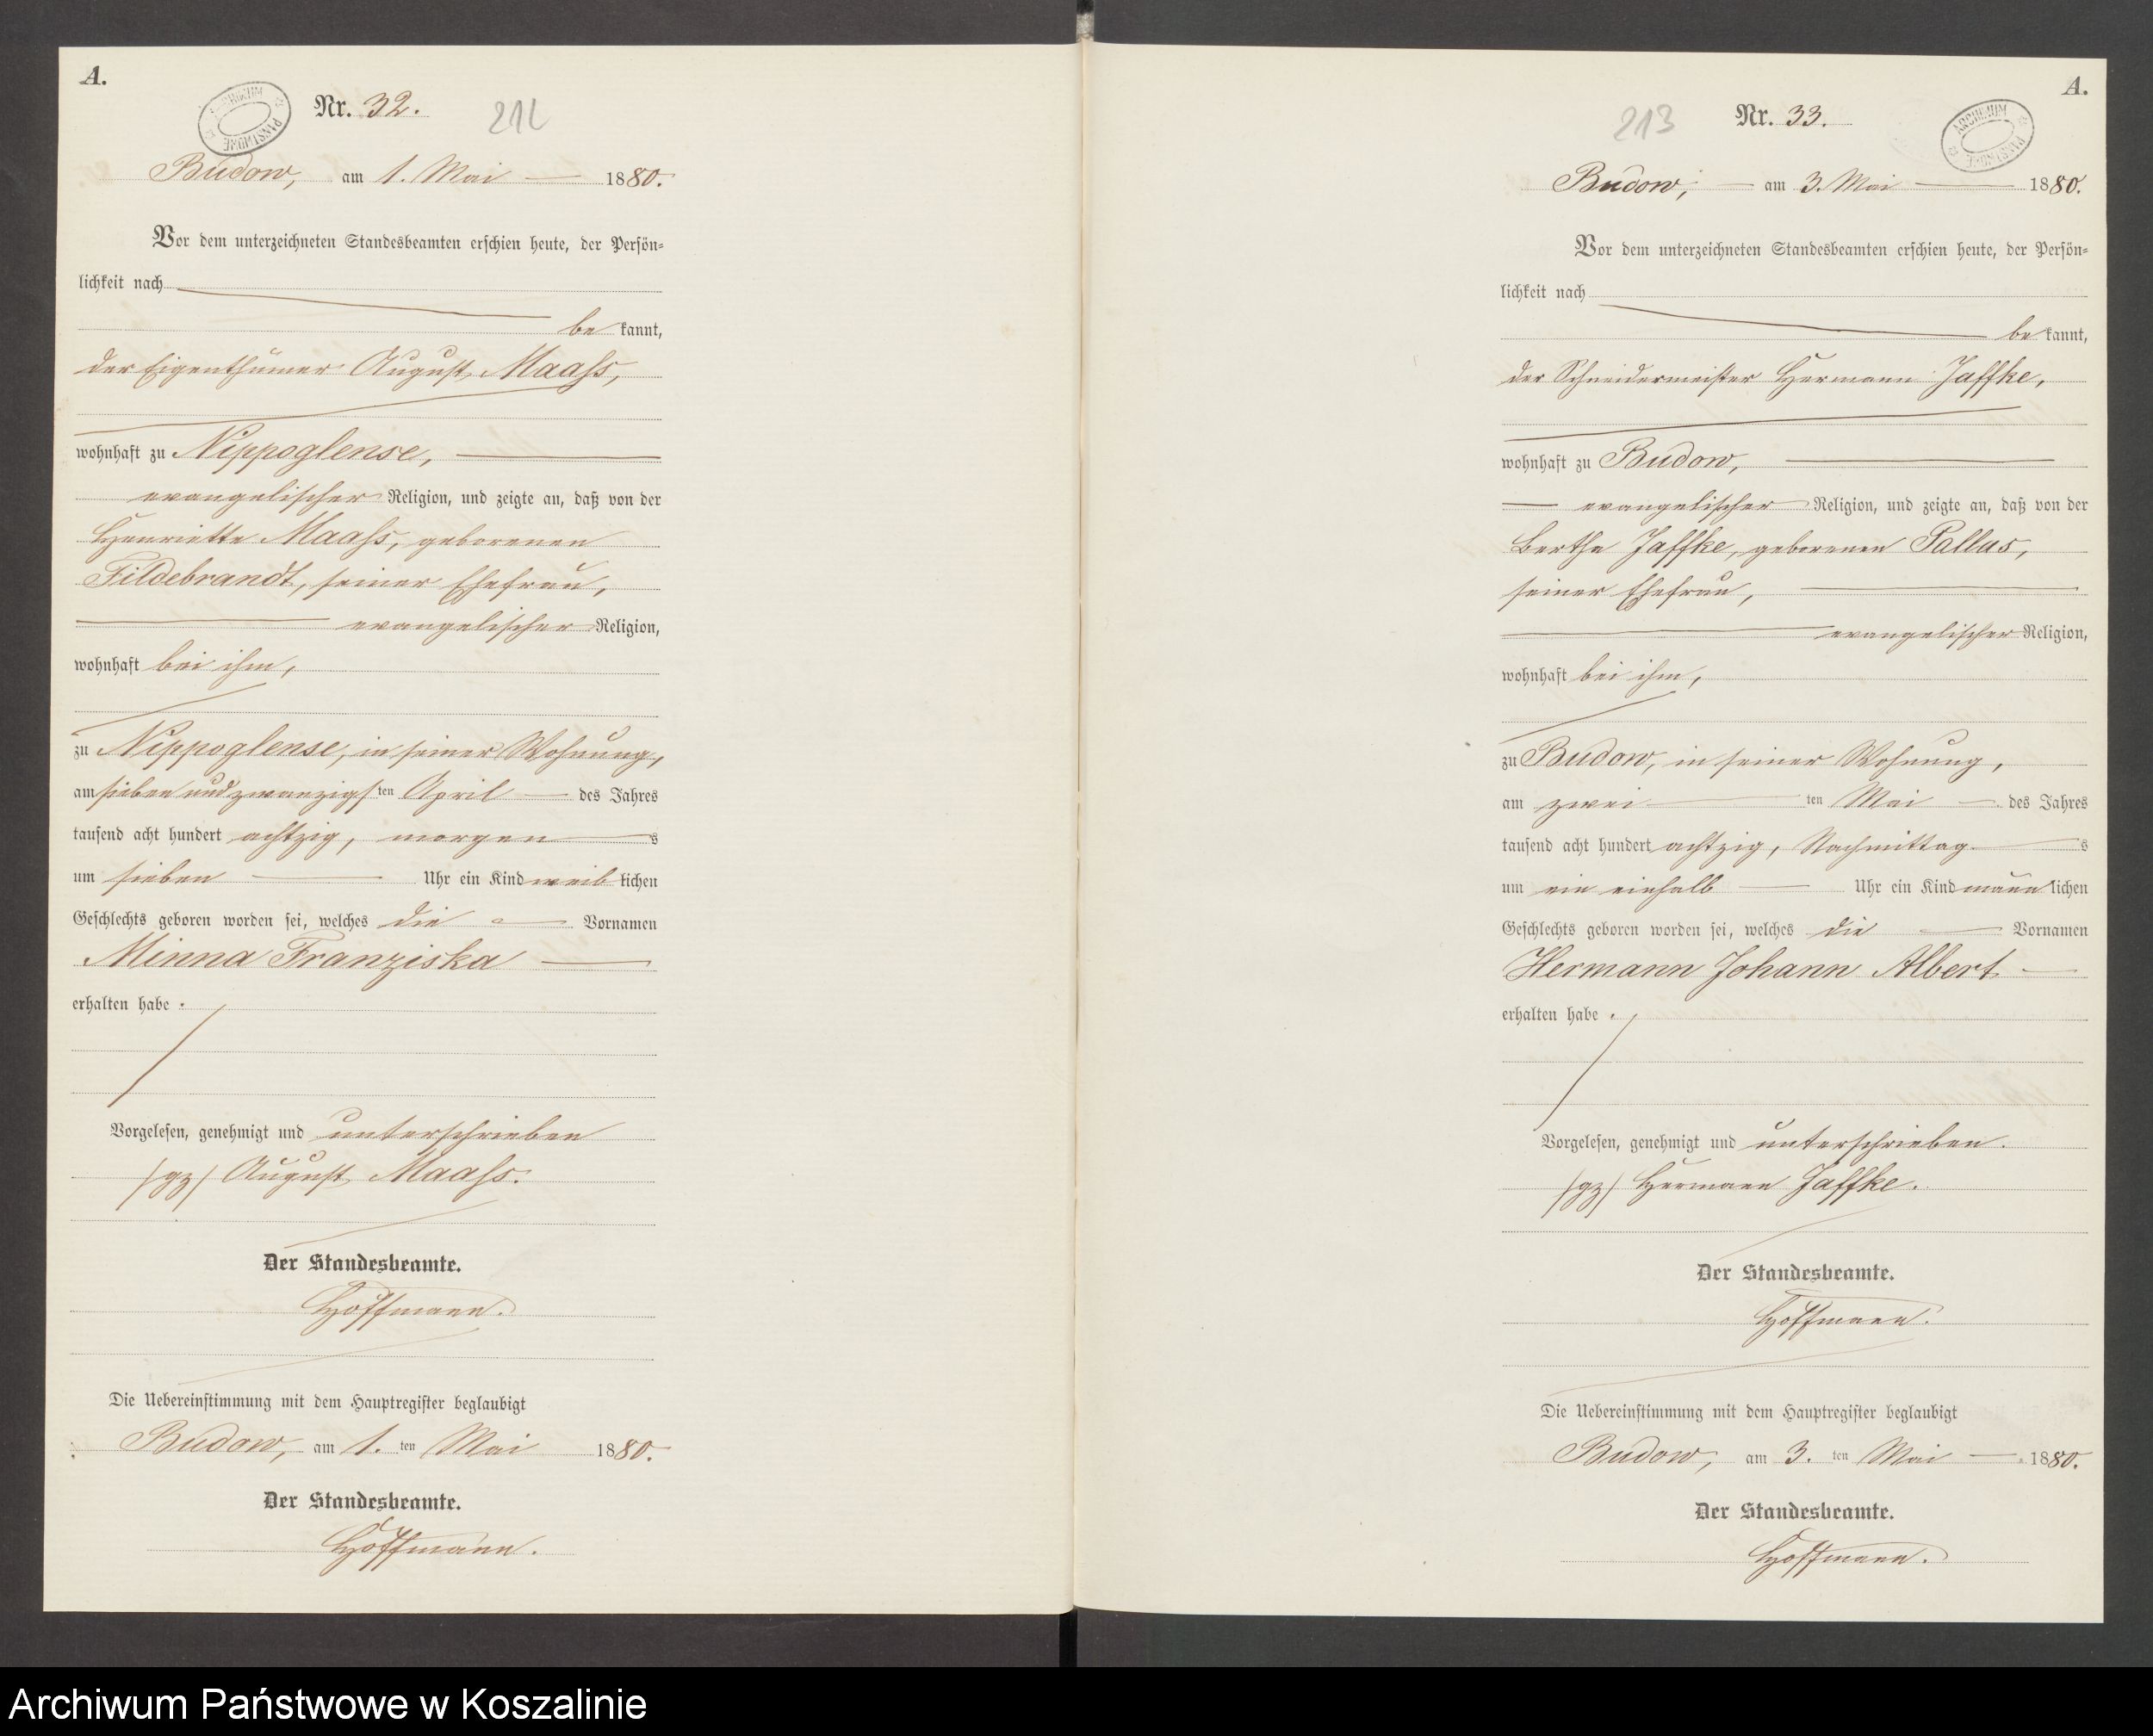 A.
ARCHIWUM PAŃSTWOWE
Nr. 32. 212
Budow, am 1. Mai 1880.
Vor dem unterzeichneten Standesbeamten erschien heute, der Persön-
lichkeit nach
be kannt,
der Eigenthümer August Maaß,
wohnhaft zu Nippoglense,
evangelischer Religion, und zeigte an, daß von der
Henriette Maaß, geborenen
Fildebrandt, seiner Ehefrau,
evangelischer Religion,
wohnhaft bei ihm,
zu Nippoglense, in seiner Wohnung,
am sieben und zwanzigsten April des Jahres
tausend acht hundert achtzig, morgens
um sieben Uhr ein Kind weiblichen
Geschlechts geboren worden sei, welches die Vornamen
Minna Franziska
erhalten habe.
Vorgelesen, genehmigt und unterschrieben
/gz/ August Maaß.
Der Standesbeamte.
Hoffmann.
Die Uebereinstimmung mit dem Hauptregister beglaubigt
Budow, am 1. ten Mai 1880.
Der Standesbeamte.
Hoffmann.
A.
ARCHIWUM PAŃSTWOWE
213 Nr. 33.
Budow, am 3. Mai 1880.
Vor dem unterzeichneten Standesbeamten erschien heute, der Persön-
lichkeit nach
be kannt,
der Schneidermeister Hermann Jaffke,
wohnhaft zu Budow,
evangelischer Religion, und zeigte an, daß von der
Bertha Jaffke, geborenen Pallas,
seiner Ehefrau,
evangelischer Religion,
wohnhaft bei ihm,
zu Budow, in seiner Wohnung,
am zwei ten Mai des Jahres
tausend acht hundert achtzig, Nachmittags
um ein einhalb Uhr ein Kind männlichen
Geschlechts geboren worden sei, welches die Vornamen
Hermann Johann Albert
erhalten habe.
Vorgelesen, genehmigt und unterschrieben.
/gz/ Hermann Jaffke.
Der Standesbeamte.
Hoffmann.
Die Uebereinstimmung mit dem Hauptregister beglaubigt
Budow, am 3. ten Mai 1880.
Der Standesbeamte.
Hoffmann.
Archiwum Państwowe w Koszalinie